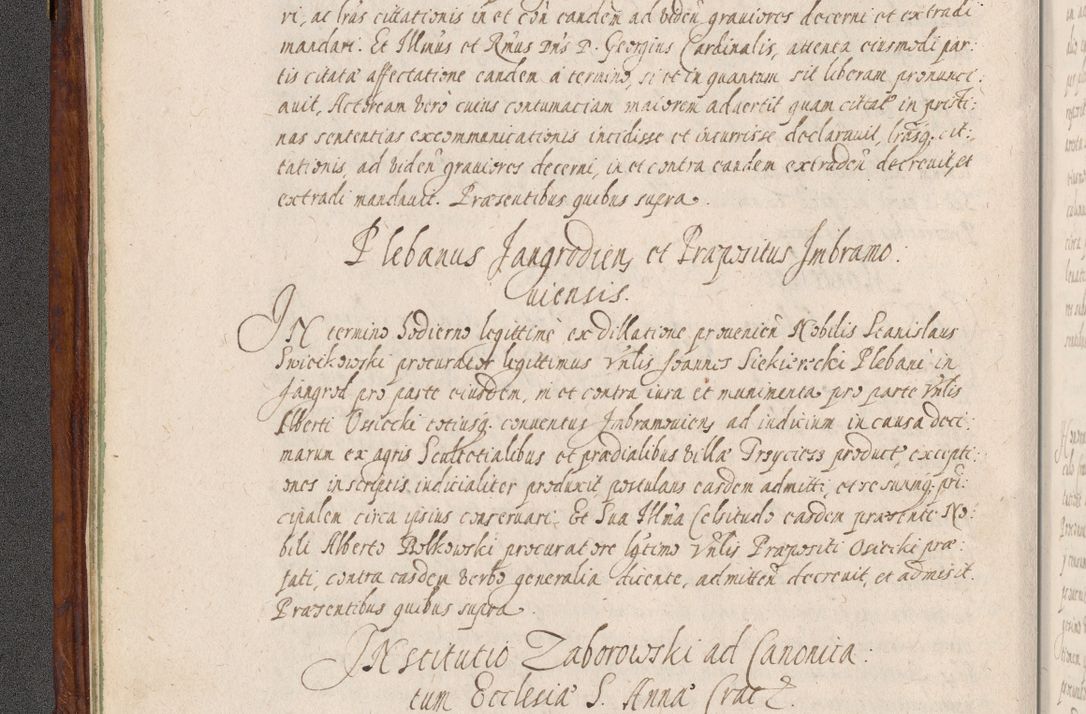 ri, ac lras citationis in et con eandem ad viden graviores decerni et extradi
mandari. Et Illmus et Rmus Dns D. Georgius Cardinalis, attenta eiusmodi par:
tis citatæ affectatione eandem a termino, si et in quantum sit liberam pronunci:
avit, Actoream vero cuius contumaciam maiorem advertit quam citatæ in pristi:
nas sententias excommunicationis incidisse et incurrisse declaravit, lrasq. cit:
tationis, ad viden graviores decerni, in et contra eandem extraden decrevit, et
extradi mandavit. Præsentibus quibus supra.
Plebanus Jangrodiens et Præpositus Imbramo:
viensis.
IN termino hodierno legittime ex dillatione provenien Nobilis Stanislaus
Swiecikowski procurator legittimus Vnlis Joannes Siekierecki Plebani in
Jangrod pro parte eiusdem, in et contra iura et munimenta pro parte Vnlis
Alberti Osiecki totiusq. conventus Imbramoviens ad iudicium in causa deci:
marum ex agris Scultetialibus et prædialibus villæ Trzyciess product, excepti:
ones in scriptis iudicialiter produxit postulans easdem admitti, et se suumq. pri:
cipalem circa ipsius conservari. Et Sua Illma Celsitudo easdem præsente No:
bili Alberto Bolkowski procuratore lgtimo Vnlis Præpositi Osiecki præ:
fati, contra easdem verbo generalia dicente, admitten decrevit, et admisit.
Præsentibus quibus supra
INstitutio Zaborowski ad Canonica:
tum Ecclesiæ S. Annæ Crac